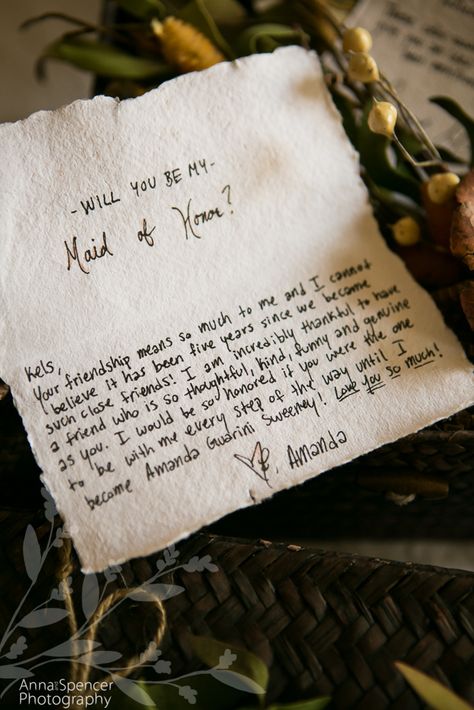 -WILL YOU BE MY-
Maid of Honor?
Kels,
Your friendship means so much to me and I cannot
believe it has been five years since we became
such close friends! I am incredibly thankful to have
a friend who is so thoughtful, kind, funny and genuine
as you. I would be so honored if you were the one
to be with me every step of the way until I
become Amanda Guarini Sweeney! Love you so much!
Amanda
Anna Spencer
Photography